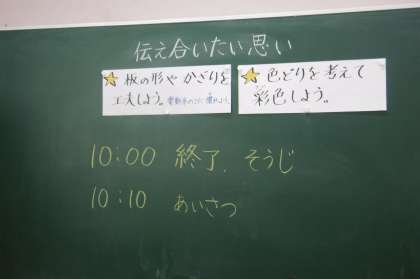 伝え合いたい思い
板の形や かざりを
工夫しよう。
色どりを考えて
彩色しよう。
10:00 終了、そうじ
10:10 あいさつ